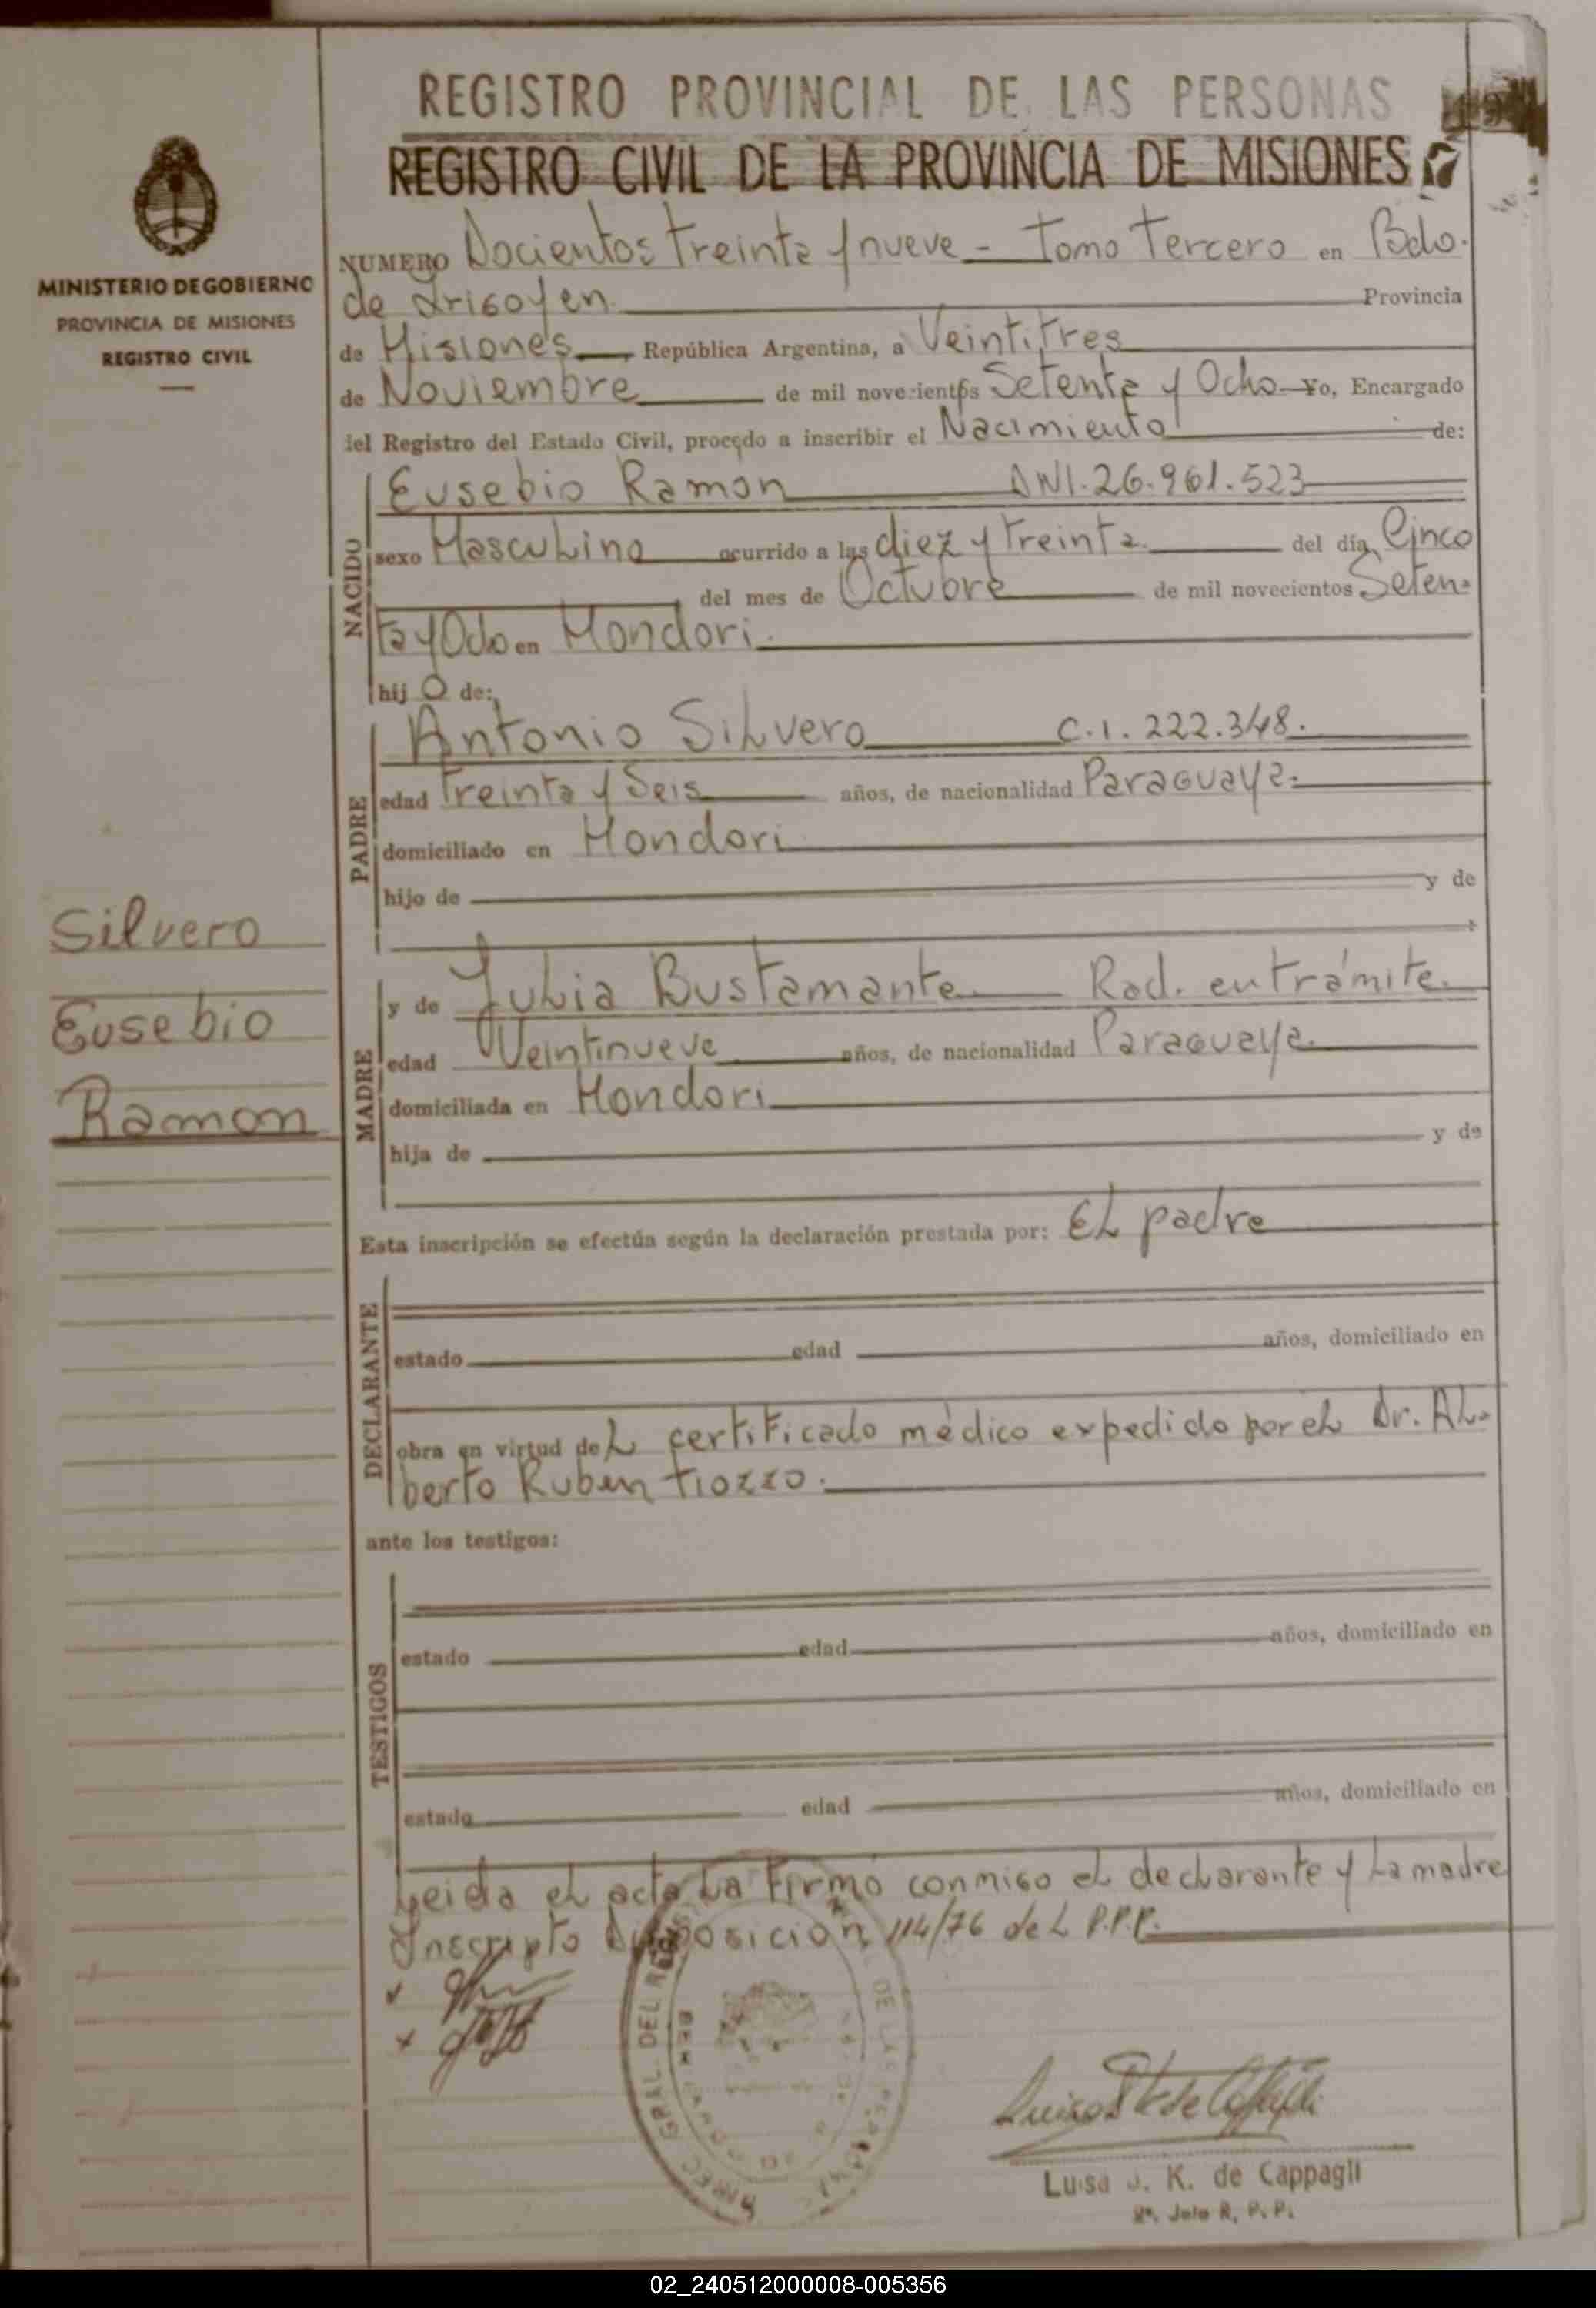 REGISTRO PROVINCIAL DE LAS PERSONAS
REGISTRO CIVIL DE LA PROVINCIA DE MISIONES
MINISTERIO DE GOBIERNO
PROVINCIA DE MISIONES
REGISTRO CIVIL
NUMERO Docientos treinta y nueve - Tomo Tercero en Bdo.
de Irigoyen. Provincia
de Misiones, República Argentina, a Veintitres
de Noviembre de mil novecientos Setenta y Ocho Yo, Encargado
del Registro del Estado Civil, procedo a inscribir el Nacimiento de:
NACIDO
Eusebio Ramon DNI. 26.961.523
sexo Masculino ocurrido a las diez y treinta del día Cinco
del mes de Octubre de mil novecientos Seten-
ta y Ocho en Mondori.
hij o de:
PADRE
Antonio Silvero C.I. 222.348.
edad treinta y Seis años, de nacionalidad Paraguaya.
domiciliado en Mondori
hijo de y de
Silvero
Eusebio
Ramon
MADRE
y de Julia Bustamante Rad. en trámite.
edad Veintinueve años, de nacionalidad Paraguaya.
domiciliada en Mondori
hija de y de
Esta inscripción se efectúa según la declaración prestada por: El padre
DECLARANTE
estado edad años, domiciliado en
obra en virtud del certificado médico expedido por el Dr. Al-
berto Ruben Tiozzo.
ante los testigos:
TESTIGOS
estado edad años, domiciliado en
estado edad años, domiciliado en
Leida el acta la firmó conmigo el declarante y la madre
Inscripto Disposición 114/76 del P.P.P.
GRAL DEL DE LAS PERSONAS
Luisa J. K. de Cappagli
Jefe R. P. P.
02_240512000008-005356